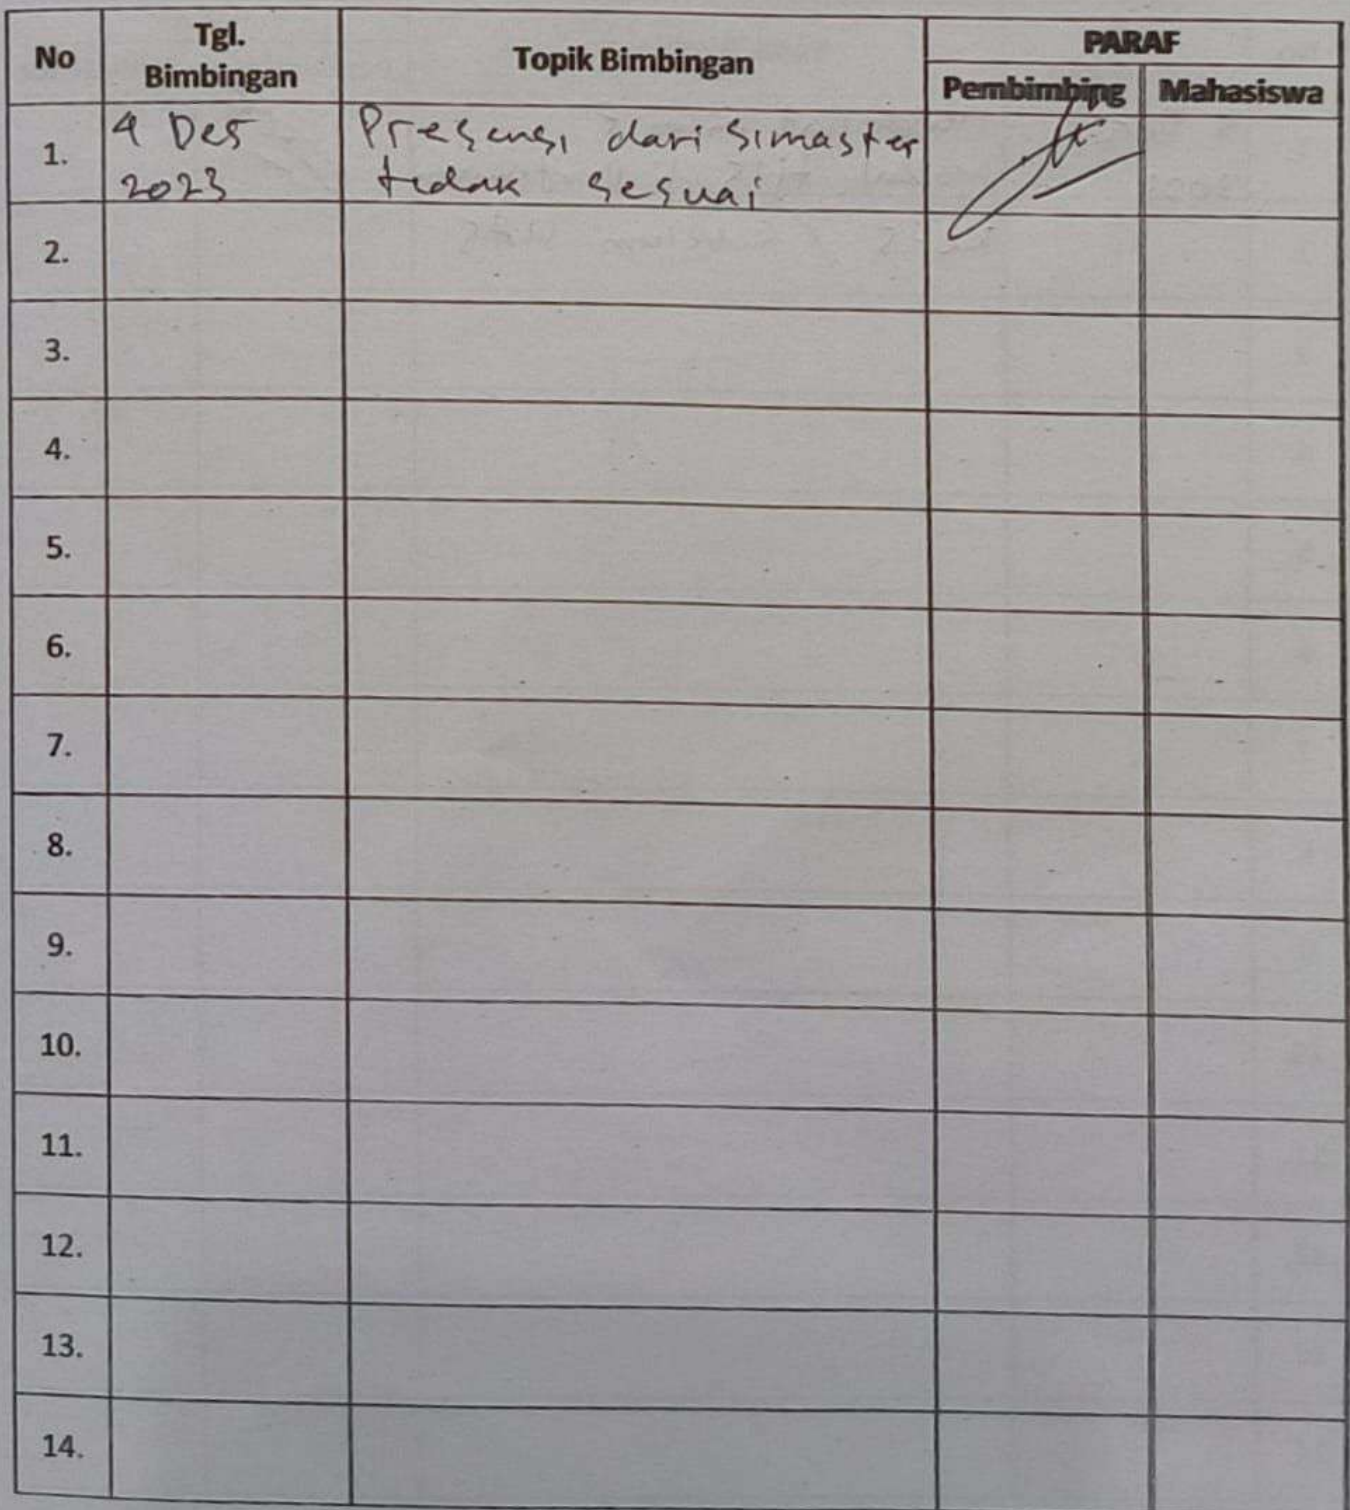 No
Tgl.
Bimbingan
Topik Bimbingan
PARAF
Pembimbing
Mahasiswa
1.
4 Des
2023
Presensi dari Simaster
tidak sesuai
2.
3.
4.
5.
6.
7.
8.
9.
10.
11.
12.
13.
14.